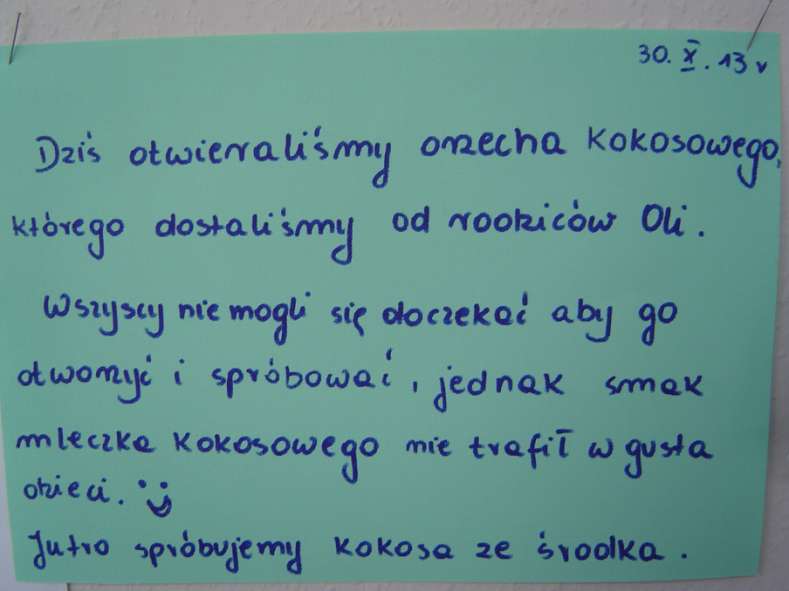 30. X. 13 r
Dziś otwieraliśmy orzecha kokosowego,
którego dostaliśmy od rodziców Oli.
Wszyscy nie mogli się doczekać aby go
otworzyć i spróbować, jednak smak
mleczka kokosowego nie trafił w gusta
dzieci.
Jutro spróbujemy kokosa ze środka.